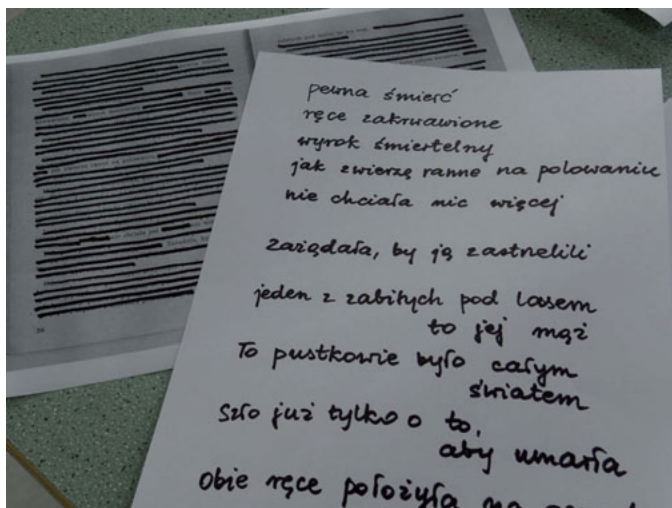 pewna śmierć
ręce zakrwawione
wyrok śmiertelny
jak zwierzę ranne na polowaniu
nie chciała nic więcej
zażądała, by ją zastrzelili
jeden z zabitych pod lasem
to jej mąż
To pustkowie było całym
światem
Szło już tylko o to,
aby umarła
Obie ręce położyła na